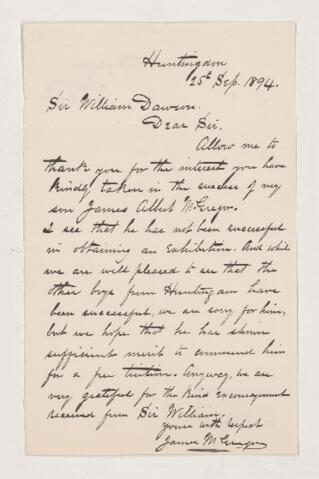 Huntingdon
25th Sep. 1894.
Sir William Dawson.
Dear Sir,
Allow me to
thank you for the interest you have
kindly taken in the success of my
son James Albert McGregor.
I see that he has not been successful
in obtaining an Exhibition. And while
we are well pleased to see that the
other boys from Huntingdon have
been successful, we are sorry for him,
but we hope that he has shown
sufficient merit to commend him
for a free tuition. Anyway, we are
very grateful for the kind encouragement
received from Sir William.
Yours with respect
James McGregor